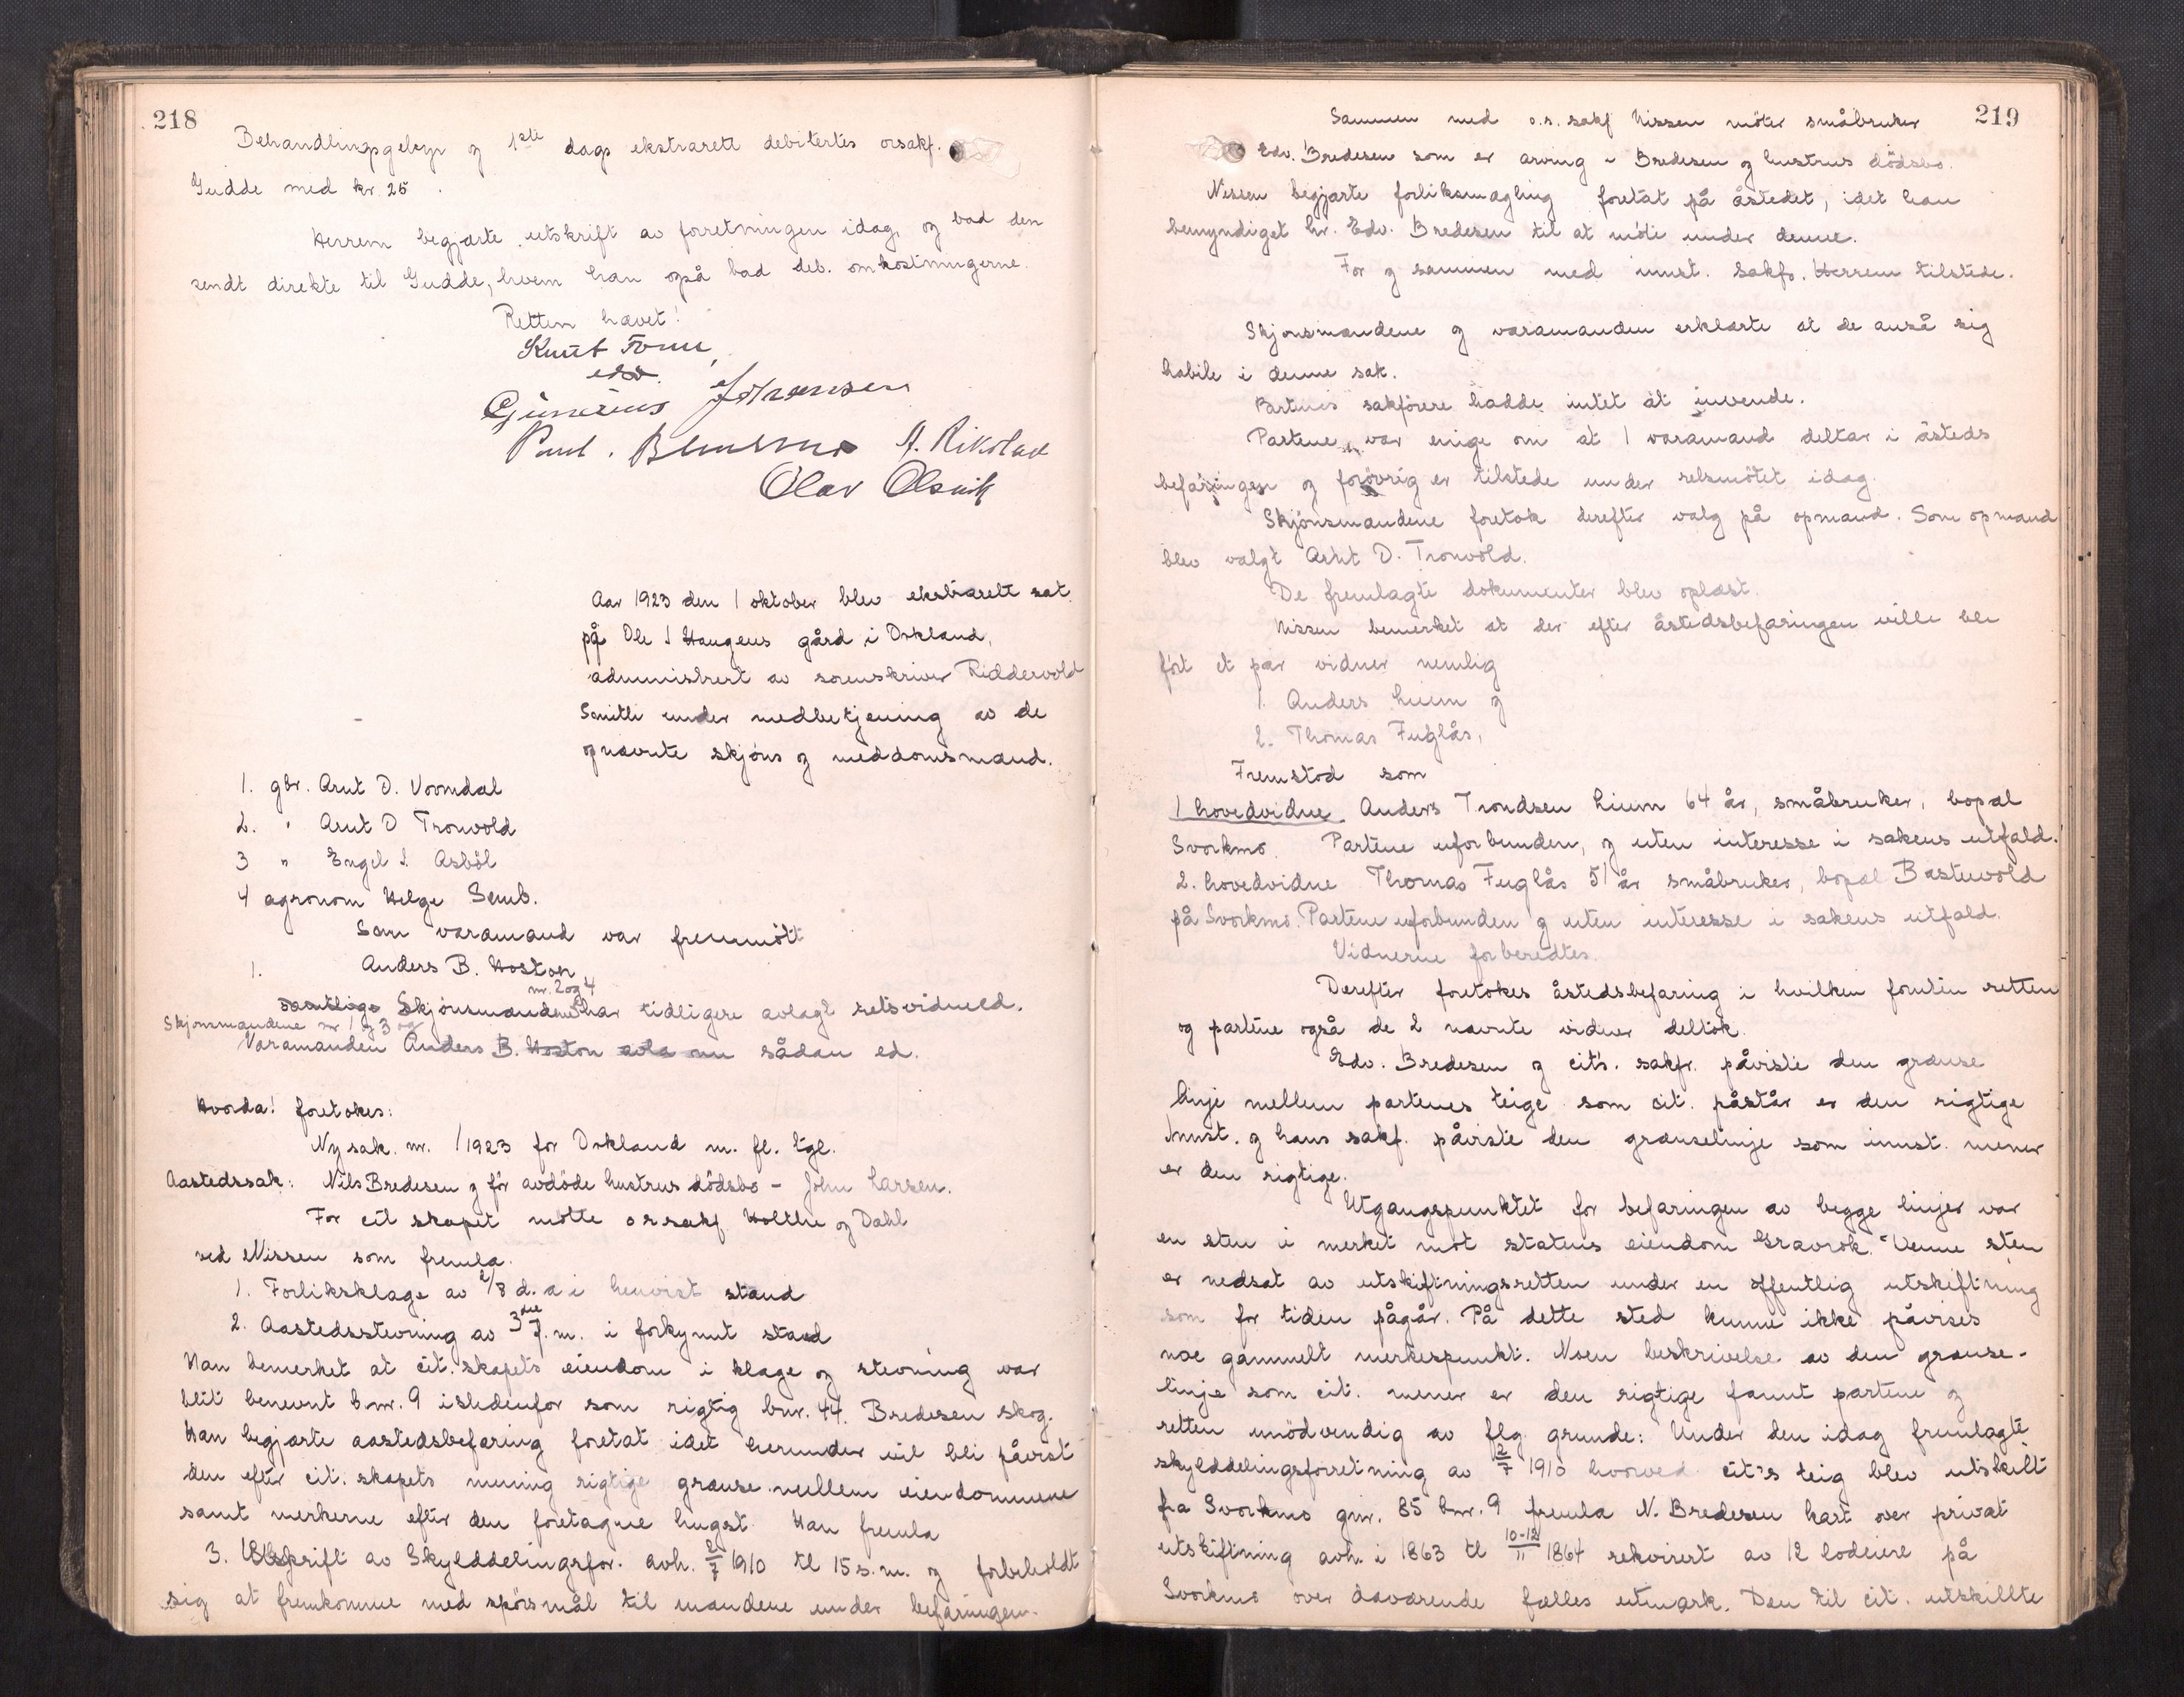 218
Behandlingsgebyr og 1ste dags ekstrarett debitertes orsakf.
Gudde med kr. 25.
Herrem begjærte utskrift av forretningen idag, og bad den
sendt direkte til Gudde, hvem han også bad deb. omkostningerne.
Retten hævet!
Knut
esv.
Gunerius Johansen
Paul. A. Rikstad
Olav Olsvik
Aar 1923 den 1 oktober blev ekstrarett sat
på Ole J Haugens gård i Orkland,
administrert av sorenskriver Riddervold
Smith under medbetjening av de
opnævnte skjøns og meddomsmænd.
1. gbr. Arnt D. Vormdal
2. " Arnt D Tronvold
3 " Engel I. Asbøl
4 agronom Helge Semb.
Som varamand var fremmøtt
1. Anders B. Hoston
nr. 2 og 4
samtlige Skjønsmændene har tidligere avlagt retsvidneed.
Skjønsmændene nr 1 og 3 og
Varamanden Anders B. Hoston avla nu sådan ed.
Hvorda! foretokes:
Ny sak. nr. /1923 for Orkland m. fl. tgl.
Aastedssak: Nils Bredesen og for avdøde hustrus dødsbo - John Larsen.
For cit skapet møtte orsakf Holthe og Dahl
ved Nissen som fremla.
1. Forliksklage av 2/8 d. a i henvist stand
2. Aastedsstevning av 3die f. m. i forkynt stand
Han bemerket at cit. skapets eiendom i klage og stevning var
blit benevnt bnr. 9 istedenfor som rigtig bnr. 44. Bredesen skog.
Han begjærte aastedsbefaring foretat idet herunder vil bli påvist
den efter cit. skapets mening rigtige grænse mellem eiendommene
samt merkerne efter den foretagne hugst. Han fremla
3. Utskrift av Skylddelingsfor. avh. 2/7 1910 tl 15 s. m. og forbeholdt
sig at fremkomme med spørsmål til mændene under befaringen.
219
Sammen med o.r. sakf Nissen møter småbruker
Edv. Bredesen som er arving i Bredesen og hustrus dødsbo.
Nissen begjærte forliksmægling foretat på åstedet, idet han
bemyndiget hr. Edv. Bredesen til at møte under denne.
For og sammen med innst. sakfo. Herrem tilstede.
Skjønsmændene og varamanden erklærte at de anså sig
habile i denne sak.
Partenes sakførere hadde intet at invende.
Partene var enige om at 1 varamand deltar i åsteds
befaringen og forøvrig er tilstede under retsmøtet idag.
Skjønsmændene foretok derefter valg på opmand. Som opmand
blev valgt Arnt D. Tronvold.
De fremlagte dokumenter blev oplæst.
Nissen bemerket at der efter åstedsbefaringen ville bli
ført et par vidner nemlig
1. Anders Lium og
2. Thomas Fuglås,
Fremstod som
1 hovedvidne. Anders Trondsen Lium 64 år, småbruker, bopæl
Svorkmo. Partene uforbunden, og uten interesse i sakens utfald.
2. hovedvidne Thomas Fuglås 51 år småbruker, bopæl Bastuvold
på Svorkmo. Partene uforbunden og uten interesse i sakens utfald.
Vidnerne forberedtes.
Derefter foretokes åstedsbefaring i hvilken foruten retten
og partene også de 2 nævnte vidner deltok.
Edv. Bredesen og cit's. sakfr. påviste den grænse
linje mellem partenes teige som cit. påstår er den rigtige
Innst. og hans sakf. påviste den grænselinje som innst. mener
er den rigtige.
Utgangspunktet for befaringen av begge linjer var
en sten i merket mot statens eiendom Gravrok. Denne sten
er nedsat av utskiftningsretten under en offentlig utskiftning
som for tiden pågår. På dette sted kunne ikke påvises
noe gammelt merkespunkt. Noen beskrivelse av den grænse-
linje som cit. mener er den rigtige fannt partene og
retten unødvendig av flg. grunde: Under den idag fremlagte
skylddelingsforretning av 2/7 1910 hvorved cit's teig blev utskilt
fra Svorkmo gnr. 85 bnr. 9 fremla N. Bredesen kart over privat
utskiftning avh. i 1863 tl 10-12/11 1864 rekvirert av 12 lodeiere på
Svorkmo over daværende fælles utmark. Den til cit. utskillte